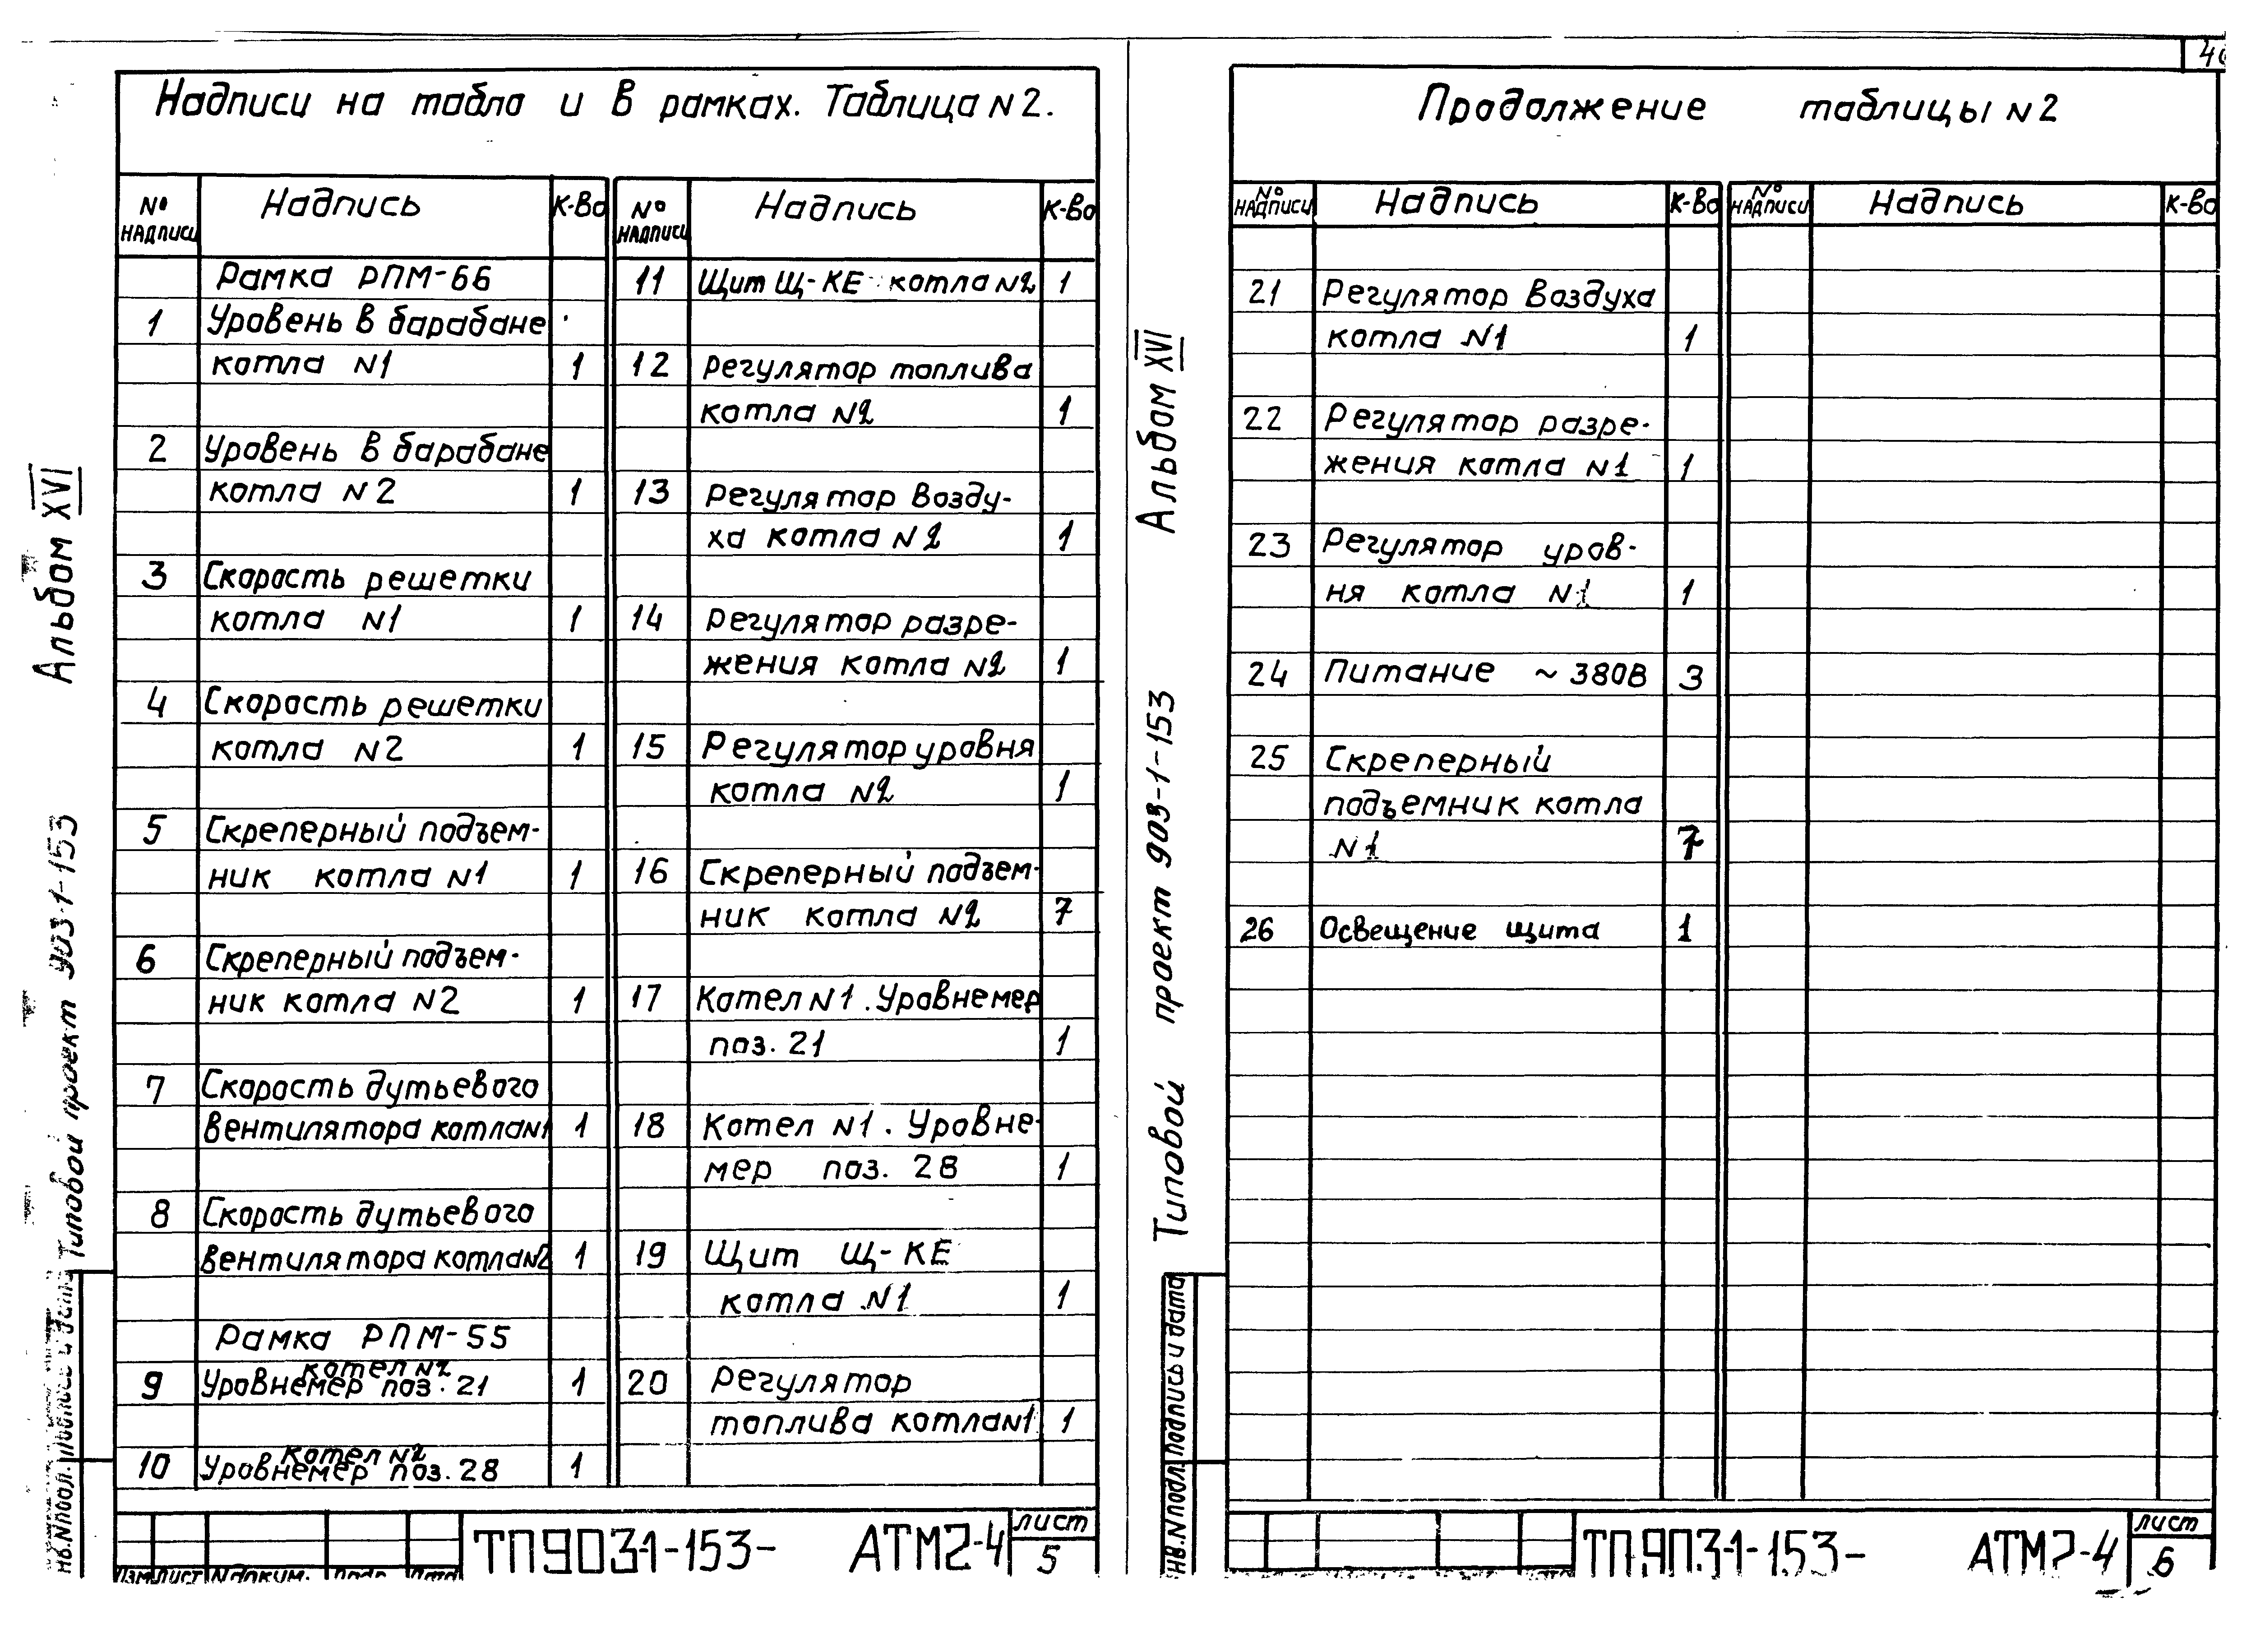 Надписи на табло и в рамках. Таблица N2.
№ надписи Надпись К-во
Рамка РПМ-66
1 Уровень в барабане
котла N1 1
2 Уровень в барабане
котла N2 1
3 Скорость решетки
котла N1 1
4 Скорость решетки
котла N2 1
5 Скреперный подъем-
ник котла N1 1
6 Скреперный подъем-
ник котла N2 1
7 Скорость дутьевого
вентилятора котла N1 1
8 Скорость дутьевого
вентилятора котла N2 1
Рамка РПМ-55
котел N2
9 Уровнемер поз. 21 1
котел N2
10 Уровнемер поз. 28 1
№ надписи Надпись К-во
11 Щит Щ-КЕ котла N2 1
12 Регулятор топлива
котла N2 1
13 Регулятор возду-
ха котла N2 1
14 Регулятор разре-
жения котла N2 1
15 Регулятор уровня
котла N2 1
16 Скреперный подъем-
ник котла N2 7
17 Котел N1. Уровнемер
поз. 21 1
18 Котел N1. Уровне-
мер поз. 28 1
19 Щит Щ-КЕ
котла N1 1
20 Регулятор
топлива котла N1 1
Альбом XVI
Типовой проект 903-1-153
Инв.Nподл. Подпись и дата
Изм Лист N докум. Подп. Дата
ТП903-1-153- АТМ2-4
лист
5
Продолжение таблицы N2
№ надписи Надпись К-во № надписи Надпись К-во
21 Регулятор воздуха
котла N1 1
22 Регулятор разре-
жения котла N1 1
23 Регулятор уров-
ня котла N1 1
24 Питание ~ 380В 3
25 Скреперный
подъемник котла
N1 7
26 Освещение щита 1
Альбом XVI
Типовой проект 903-1-153
Инв.Nподл. Подпись и дата
ТП903-1-153- АТМ2-4
лист
6